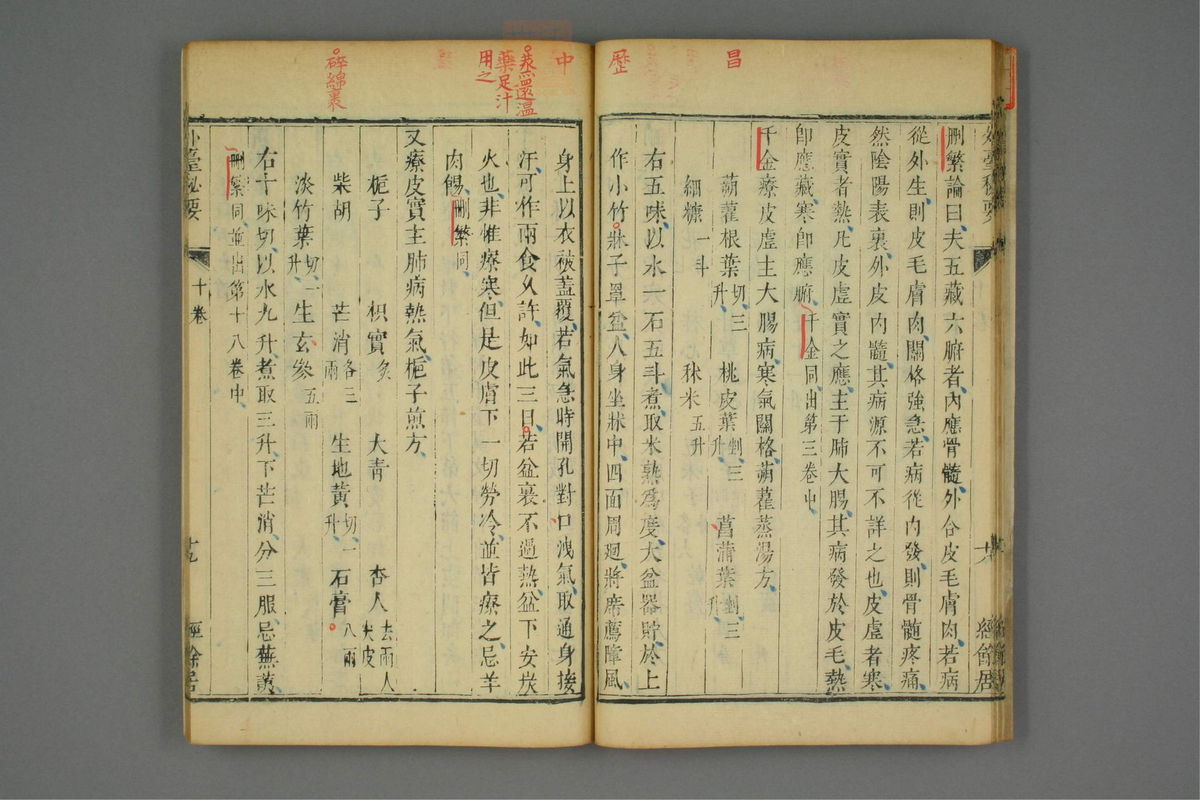 昌
歷
刪繁論曰夫五藏六腑者內應骨髓外合皮毛膚肉若病
從外生則皮毛膚肉關格強急若病從內發則骨髓疼痛
然陰陽表裏外皮內髓其病源不可不詳之也皮虛者寒
皮實者熱凡皮虛實之應主于肺大腸其病發於皮毛熱
即應藏寒即應腑千金同出第三卷中
千金療皮虛主大腸病寒氣關格蒴藋蒸湯方
蒴藋根葉切三升 桃皮葉剉三升 菖蒲葉剉三升
細糠一斗 秫米五升
右五味以水一石五斗煮取米熟為度大盆器貯於上
作小竹牀子罩盆人身坐牀中四面周廻將席薦障風
中
蒸還溫
藥足汁
用之
碎綿裹
身上以衣被蓋覆若氣急時開孔對口洩氣取通身接
汗可作兩食久許如此三日若盆裏不過熱盆下安炭
火也非惟療寒但是皮膚下一切勞冷並皆療之忌羊
肉餳刪繁同
又療皮實主肺病熱氣梔子煎方
梔子 枳實炙 大青 杏人去兩人尖皮
柴胡 芒消各三兩 生地黃切一升 石膏八兩
淡竹葉切一升 生玄參五兩
右十味切以水九升煮取三升下芒消分三服忌蕪荑
刪繁同並出第十八卷中
外臺秘要
十卷
十九
經餘居